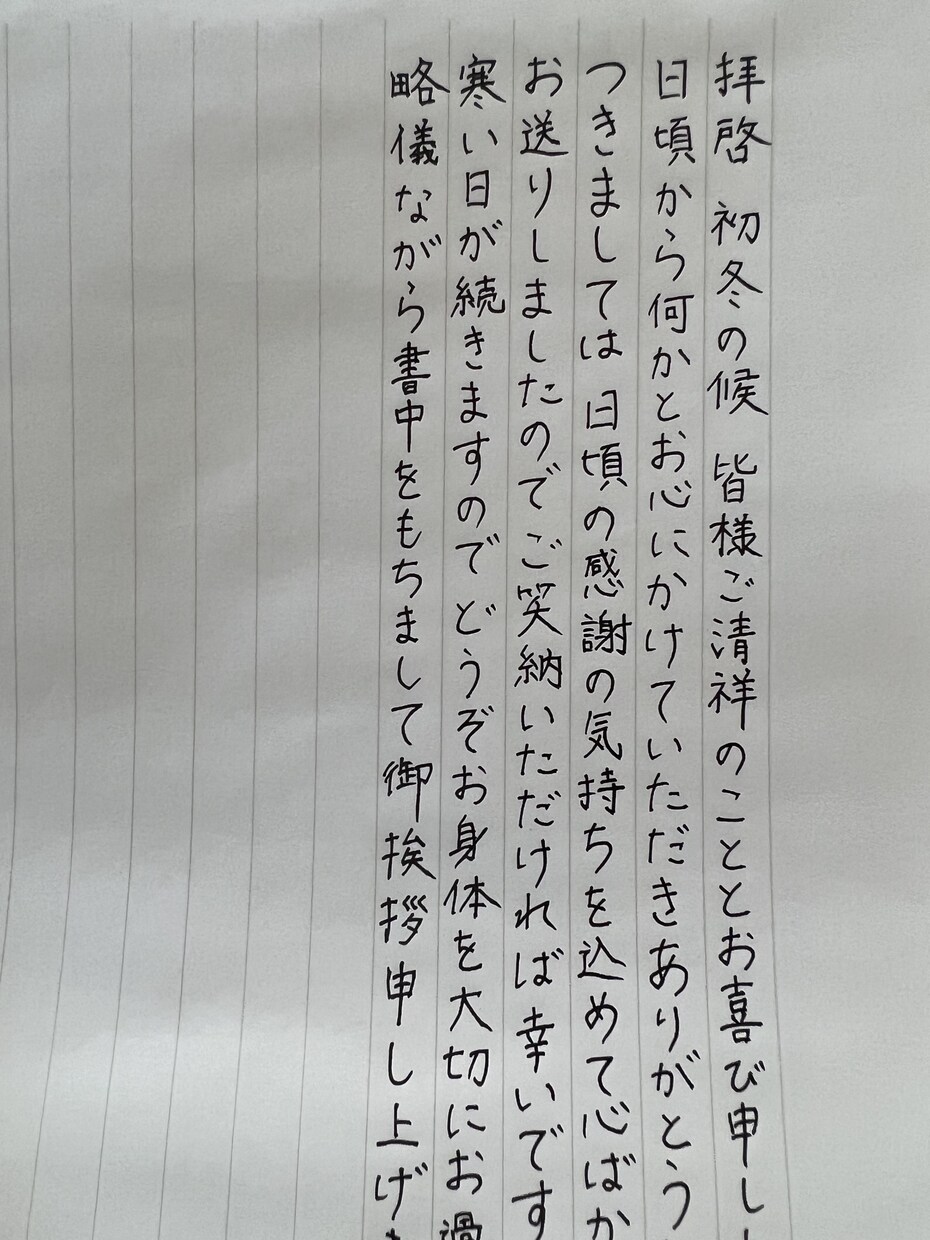 拝啓 初冬の候 皆様ご清祥のこととお喜び申し
日頃から何かとお心にかけていただきありがとう
つきましては 日頃の感謝の気持ちを込めて心ばか
お送りしましたので ご笑納いただければ幸いです
寒い日が続きますので どうぞお身体を大切にお過
略儀ながら書中をもちまして御挨拶申し上げ